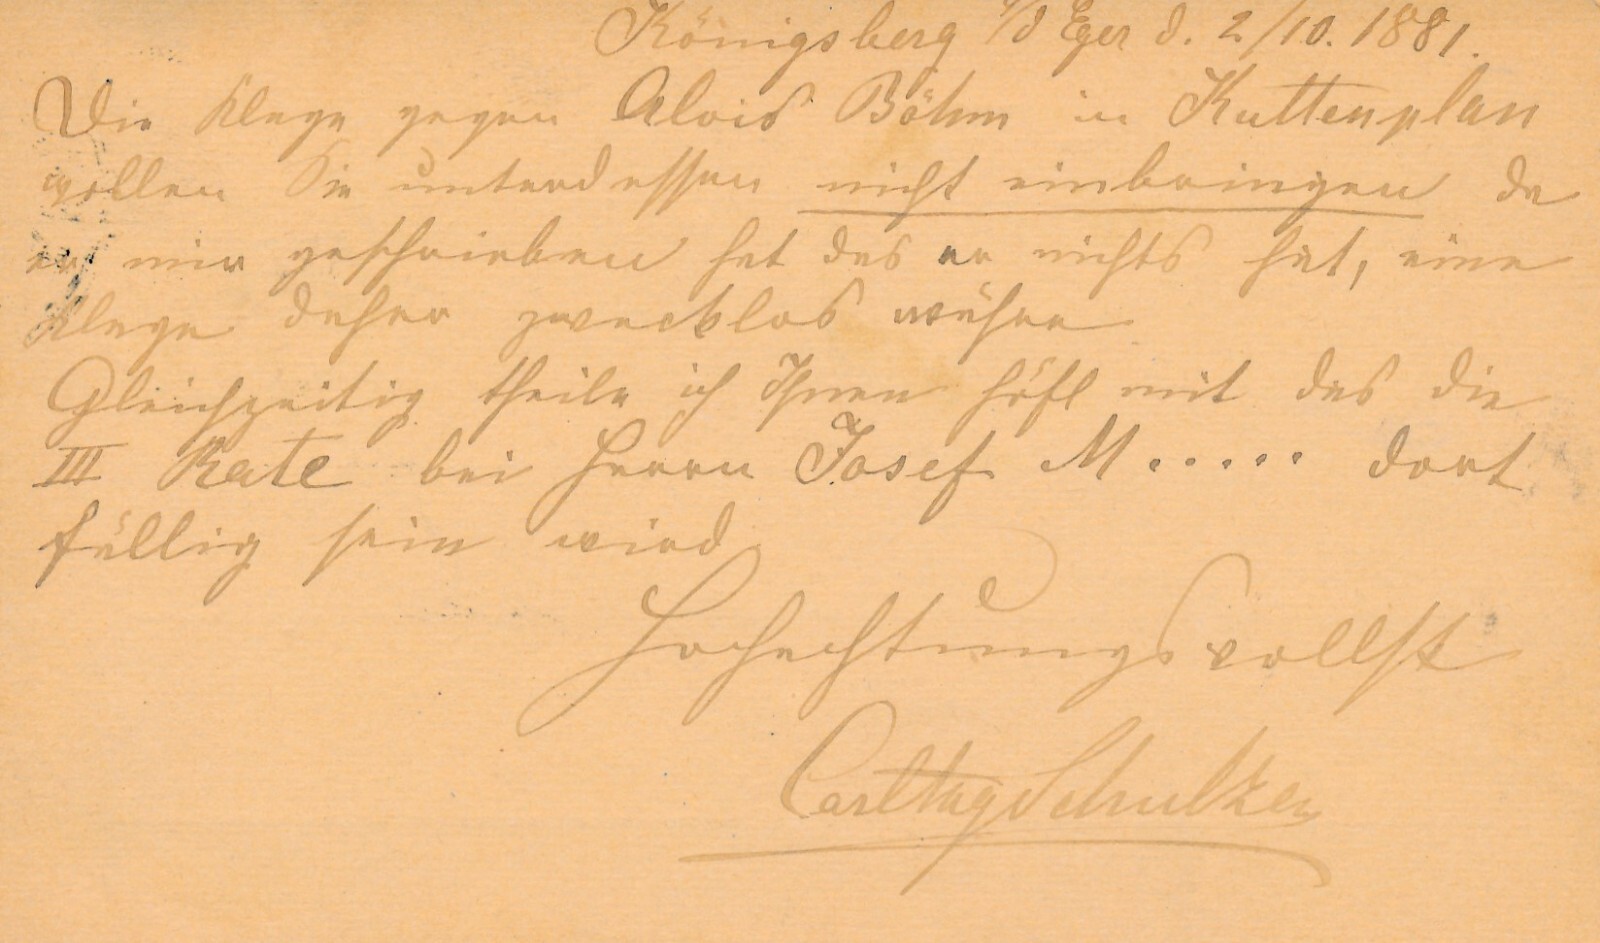 Königsberg a/d Eger d. 2/10. 1881.
Die Klage gegen Alois Böhm in Kuttenplan
wollen Sie unterdessen nicht einbringen da
er mir geschrieben hat das er nichts hat, eine
Klage daher zwecklos währe
Gleichzeitig theile ich Ihnen höfl mit das die
III Rate bei Herrn Josef M..... dort
fällig sein wird
Hochachtungsvollst
Carl